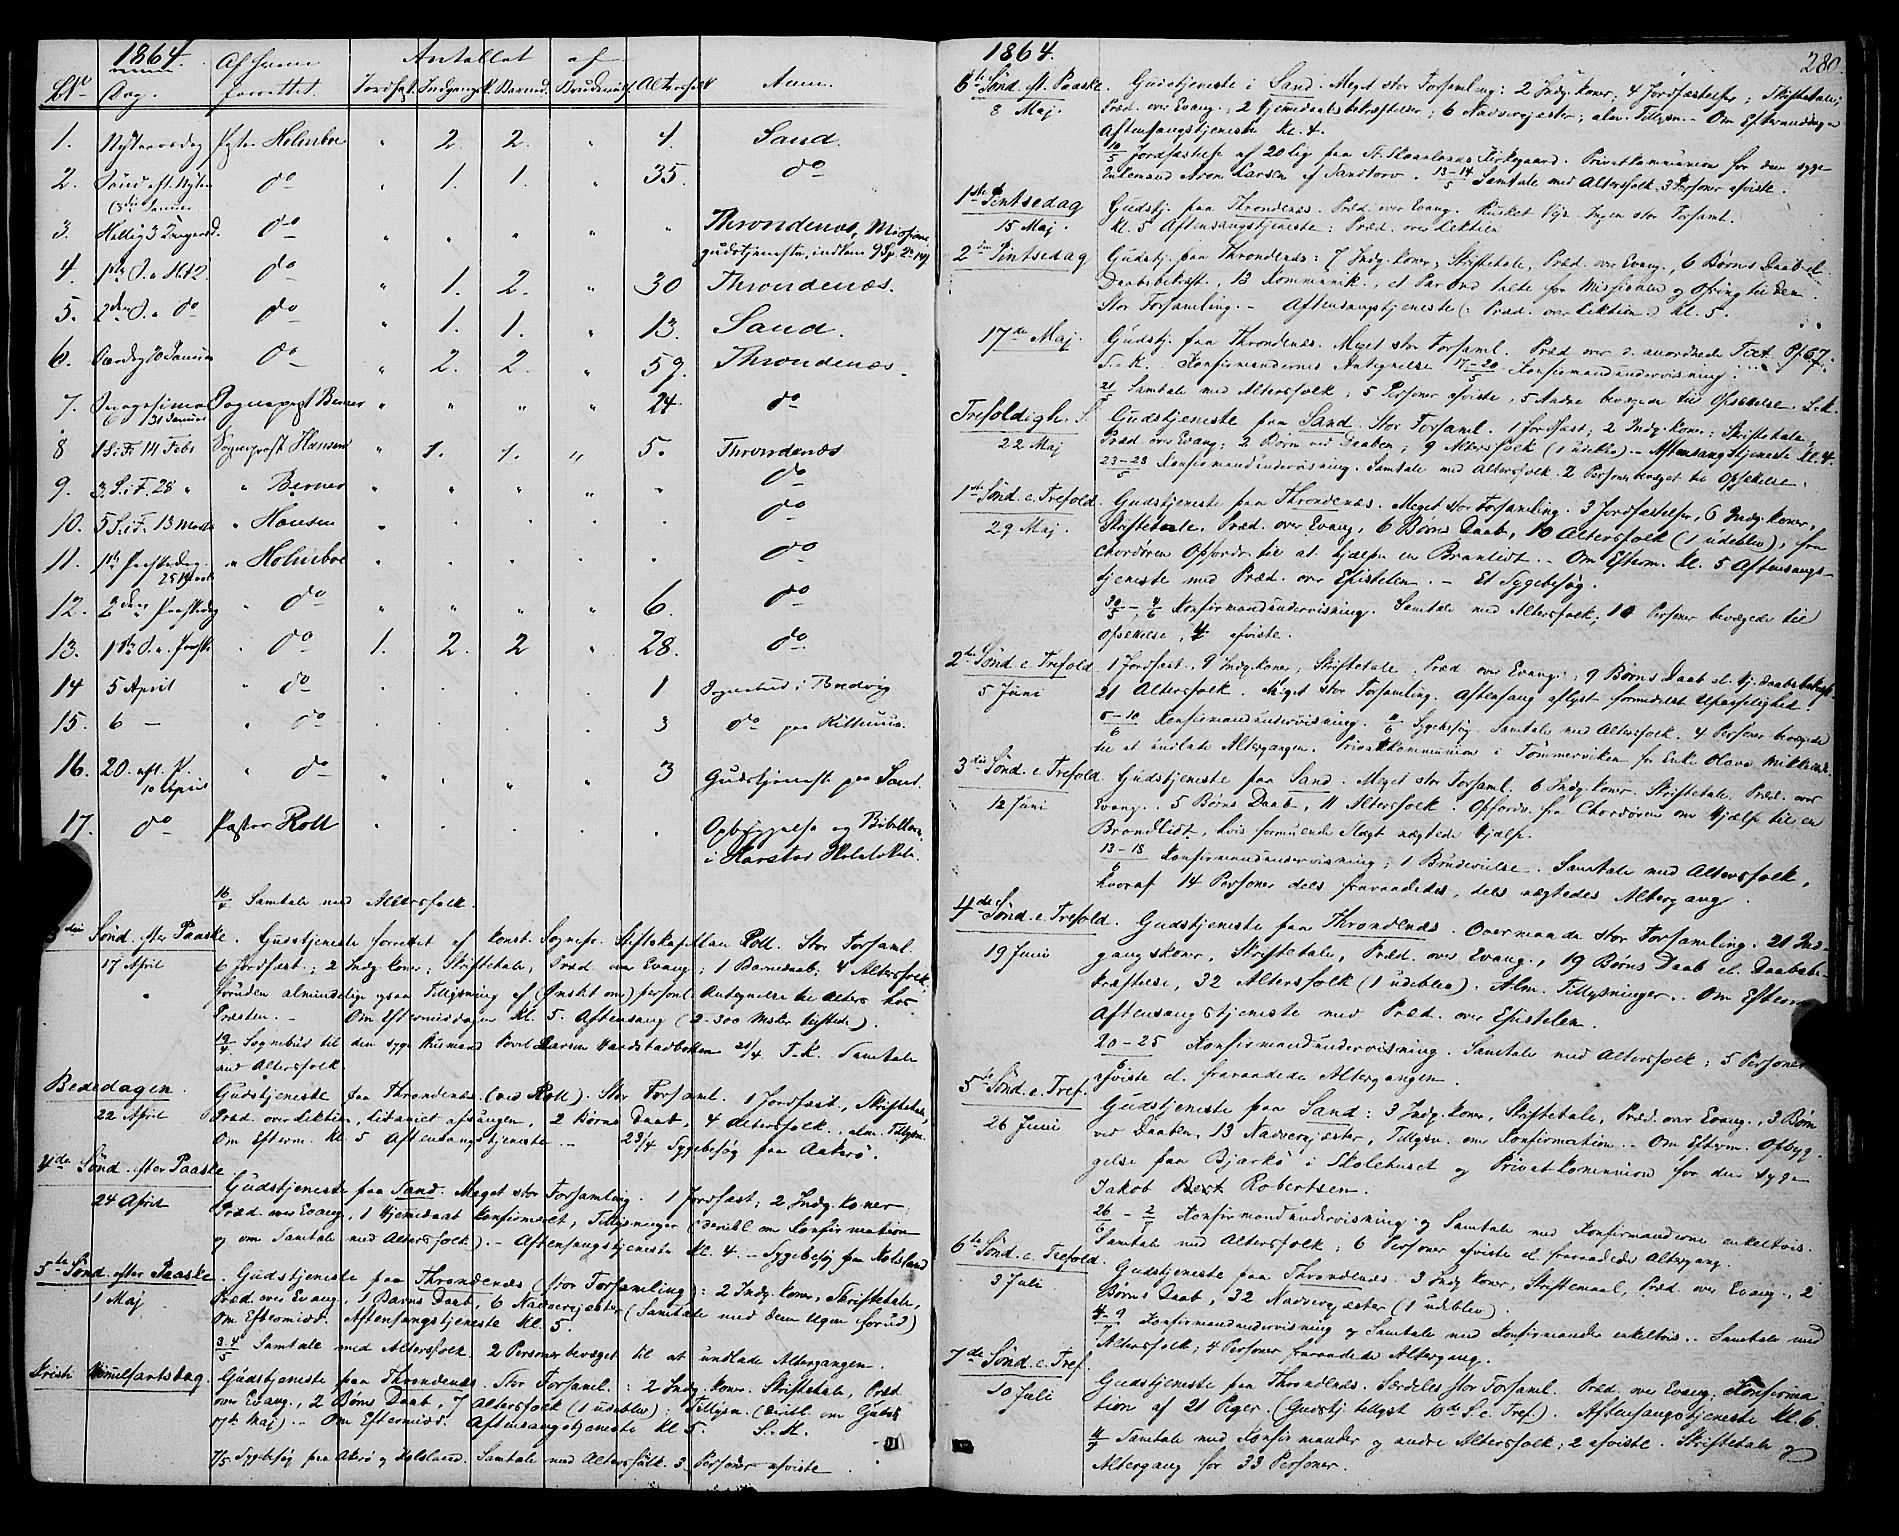 1864.
No Dag. Af hvem forrettet. Antallet af Jordfæst. Indgangsk. Barned. Brudevies. Altersfolk Anm.
1. Nytaarsdag Pastor Holmboe " 2. 2. " 4 Sand.
2. Sønd eft. Nytaar do " 1. 1. " 35. do
3die Januar
3. Hellig 3 Kongersd. do " " " " " Throndenæs, Missions
gudstjeneste, indkom
4. 1ste S. e. H.t.2. do " 1. 2. " 30 Throndenæs.
5. 2den S. e. do do " 1. 1. " 13. Sand.
6. do " 2. 2. " 59. Throndenæs.
7. Sogneprest Berner " " " " 24 do
31 Januar
8 1 S. i F. 14 Febr Sogneprest Hansen " 1. 1. " 5. Throndenæs
9. 3. S. i F. 28 " " Berner " " " " " do
10. 5 S. i F. 13 Marts " Hansen " do
11. 1ste Paaskedag " Holmboe do
12. 2den Paaskedag " do " " " " 6. do
13. 1ste S. e. Paaske " do 1. 2. 2 " 28. do
14 5 April " do 1 Sognebud i Bredvig
15. 6 — " do 3 do paa
16. 2 S. eft. P. " do " " 3 Gudstjeneste paa Sand.
10 April
17. do Pastor Roll Opbyggelse og Bibellæsn.
i Harstad Skolelokale.
16/4 Samtale med Altersfolk.
3die Sønd. efter Paaske. Gudstjeneste forrettet af konst. Sognepr. Stiftskapellan Roll. Stor Forsaml.
17 April 6 Jordfæst.; 2 Indg. koner; Skriftetale; Præd. over Evang; 1 Barnedaab; 4 Altersfolk.
foruden almindelige ogsaa Tillysning af (Ønsket om) personl. Antegnelse til Alters hos
Præsten. — Om Eftermiddagen Kl. 5. Aftensang (2-300 Msker tilstede).
19/4 Sognebud til den syge Husmand Povel Larsen Harstadbotten 21/4 F.K. Samtale
med Altersfolk.
Bededagen. Gudstjeneste paa Throndenæs (ved Roll). Stor Forsaml. 1 Jordfæst, Skriftetale,
22 April Præd. over Lektien, Litaniet afsungen, 2 Børns Daab, 4 Altersfolk., alm. Tillysn.
Om Efterm. Kl. 5 Aftensangstjeneste — 23/4 Sygebesøg paa Aakerø.
4de Sønd. efter Paaske. Gudstjeneste paa Sand. Meget stor Forsamling. 1 Jordfæst; 2 Indg. koner
24 April Præd. over Evang., 1 Hjemmedaab konfirmeret, Tillysninger (deribl. om Konfirmation
og om Samtale med Altersfolk). — Aftensangstjeneste Kl. 4. — Sygebesøg paa
5te Sønd. efter Paaske. Gudstjeneste paa Throndenæs (stor Forsamling): 2 Indg. koner, Skriftetale,
1 Maj Præd. over Evang, 1 Barns Daab, 6 Nadvergjester (Samtale med dem Ugen forud)
Om Eftermidd. Aftensangstjeneste Kl. 5.
3-4/5 Samtale med Altersfolk. 2 Personer bevæget til at undlade Altergangen.
Kristi Himmelfartsdag. Gudstjeneste paa Throndenæs. Stor Forsaml.: 2 Indg. koner. Skriftetale, Præd.
over Evang., 2 Børns Daab, 7 Altersfolk (1 udeblev): Tillysn. (deribl. om Gudstj.
17de Maj). — Om Eftermidd. Aftensangstjeneste Kl 5. S. M.
7/5 Sygebesøg paa Akerø og Samtale med Altersfolk. 3 Personer afviste.
1864. 280.
6te Sønd. eft. Paaske. Gudstjeneste i Sand. Meget stor Forsamling: 2 Indg. koner; 4 Jordfæstelser; Skriftetale;
8 Maj. Præd. over Evang., 2 Hjemmedaabsbekræftelser; 6 Nadvergjester; alm. Tillysn. — Om Eftermiddagen
Aftensangstjeneste Kl. 4.
10/5 Jordfæstelse af 20 Lig paa Kirkegaard. Privatkommunion for den syge
Enkemand Aron Larsen af Sandtorv. 13-14/5 Samtale med Altersfolk. 3 Personer afviste.
1ste Pintsedag Gudstj. paa Throndenæs. Præd. over Evang. Rusket Vejr. Ingen stor Forsaml.
15 Maj. Kl. 5 Aftensangstjeneste: Præd. over Lektien
2den Pintsedag Gudstj. paa Throndenæs: 7 Indg. koner, Skriftetale, Præd. over Evang., 6 Børns Daab el.
Daabsbekræft., 13 Kommunik., et Par Ord talte for Missionen og Ofring til den.
Stor Forsamling. — Aftensangstjeneste (: Præd. over Lektien.) Kl. 5.
17de Maj. Gudstj. paa Throndenæs. Meget stor Forsaml. Præd. over d. anordnede Text. Ps. 67.
F. K. Konfirmandernes Antegnelse 17-20/5 Konfirmandundervisning.
21/5 Samtale med Altersfolk, 5 Personer afviste, 5 Andre bevægede til Opsættelse. S.k.
Trefoldigh. S. Gudstjeneste paa Sand. Stor Forsaml. 1 Jordfæst; 2 Indg. koner; Skriftetale;
22 Maj Præd over Evang; 2 Børn ved Daaben; 9 Altersfolk (1 udeblev). — Aftensangstjeneste Kl. 4.
23-28/5 Konfirmandundervisning. Samtale med Altersfolk. 2 Personer bevæget til Opsættelse.
1ste Sønd. e. Trefold. Gudstjeneste paa Throndenæs. Meget stor Forsamling. 3 Jordfæstelser, 6 Indg. koner,
29 Maj. Skriftetale, Præd. over Evang, 6 Børns Daab, 10 Altersfolk (1 udeblev), fra
Chordøren Opfordr. til at hjælpe en Brandlidt. — Om Efterm. Kl. 5 Aftensangs-
tjeneste med Præd. over Epistelen. — Et Sygebesøg.
30/5 - 4/6 Konfirmandundervisning. Samtale med Altersfolk; 10 Personer bevægede til
Opsættelse, 4 afviste.
2den Sønd. e. Trefold. 1 Jordfæst., 9 Indg. koner; Skriftetale; Præd over Evang.; 9 Børns Daab el. Hj. daabsbekræft.
5 Juni 21 Altersfolk. Meget stor Forsamling. Aftensang aflyst formedelst Upasselighed.
6-10/6 Konfirmandundervisning. 11/6 Sygebesøg. Samtale med Altersfolk. 4 Personer bevægede
til at undlade Altergangen. Privatkommunion i Tømmerviken for Enke Olava
3die Sønd. e. Trefold. Gudstjeneste paa Sand. Meget stor Forsaml. 6 Indg. koner. Skriftetale. Præd. over
12 Juni Evang. 5 Børns Daab, 11 Altersfolk. Opfordr. fra Chordøren om Hjælp til en
Brandlidt, hvis formuende Slægt nægtede Hjælp.
13-18/6 Konfirmandundervisning; 1 Brudevielse. Samtale med Altersfolk,
hvoraf 14 Personer dels fraraadedes, dels nægtedes Altergang.
4de Sønd. e. Trefold. Gudstjeneste paa Throndenæs. Overmaade stor Forsamling. 21 Ind-
19 Juni gangskoner, Skriftetale, Præd. over Evang., 19 Børns Daab el. Daabsbe-
kræftelse, 32 Altersfolk (1 udeblev). Alm. Tillysninger. Om Efterm.
Aftensangstjeneste med Præd. over Epistelen.
20-25/6 Konfirmandundervisning. Samtale med Altersfolk; 5 Personer
afviste el. fraraadede Altergangen.
5te Sønd. e. Tref. Gudstjeneste paa Sand: 3 Indg. koner, Skriftetale, Præd. over Evang., 3 Børn
26 Juni ved Daaben, 13 Nadvergjester, Tillysn. om Konfirmation. — Om Efterm. Opbyg-
gelse paa Bjarkø i Skolehuset og Privatkommunion for den syge
Jakob Robertsen.
26/6 - 2/7 Konfirmandundervisning og Samtale med Konfirmanderne enkeltvis.
Samtale med Altersfolk; 6 Personer afviste el. fraraadede Altergang.
6te Sønd. e. Trefold. Gudstjeneste paa Throndenæs. 3 Indg. koner, Skriftemaal, Præd. over Evang., 2
3 Juli Børns Daab, 32 Nadvergjester (1 udeblev).
4-9/7 Konfirmandundervisning og Samtale med Konfirmander enkeltvis. Samtale med
Altersfolk; 4 Personer fraraadede Altergang.
7de Sønd. e. Tref. Gudstjeneste paa Throndenæs. Særdeles stor Forsaml. Præd. over Evang; Konfirma-
10 Juli tion af 21 Piger. (Gudstj. tillyst 10de S. e. Tref.). Aftensangstjeneste Kl. 6.
11/7 Samtale med Konfirmander og andre Altersfolk; 2 afviste. Skriftetale og
Altergang for 33 Personer.